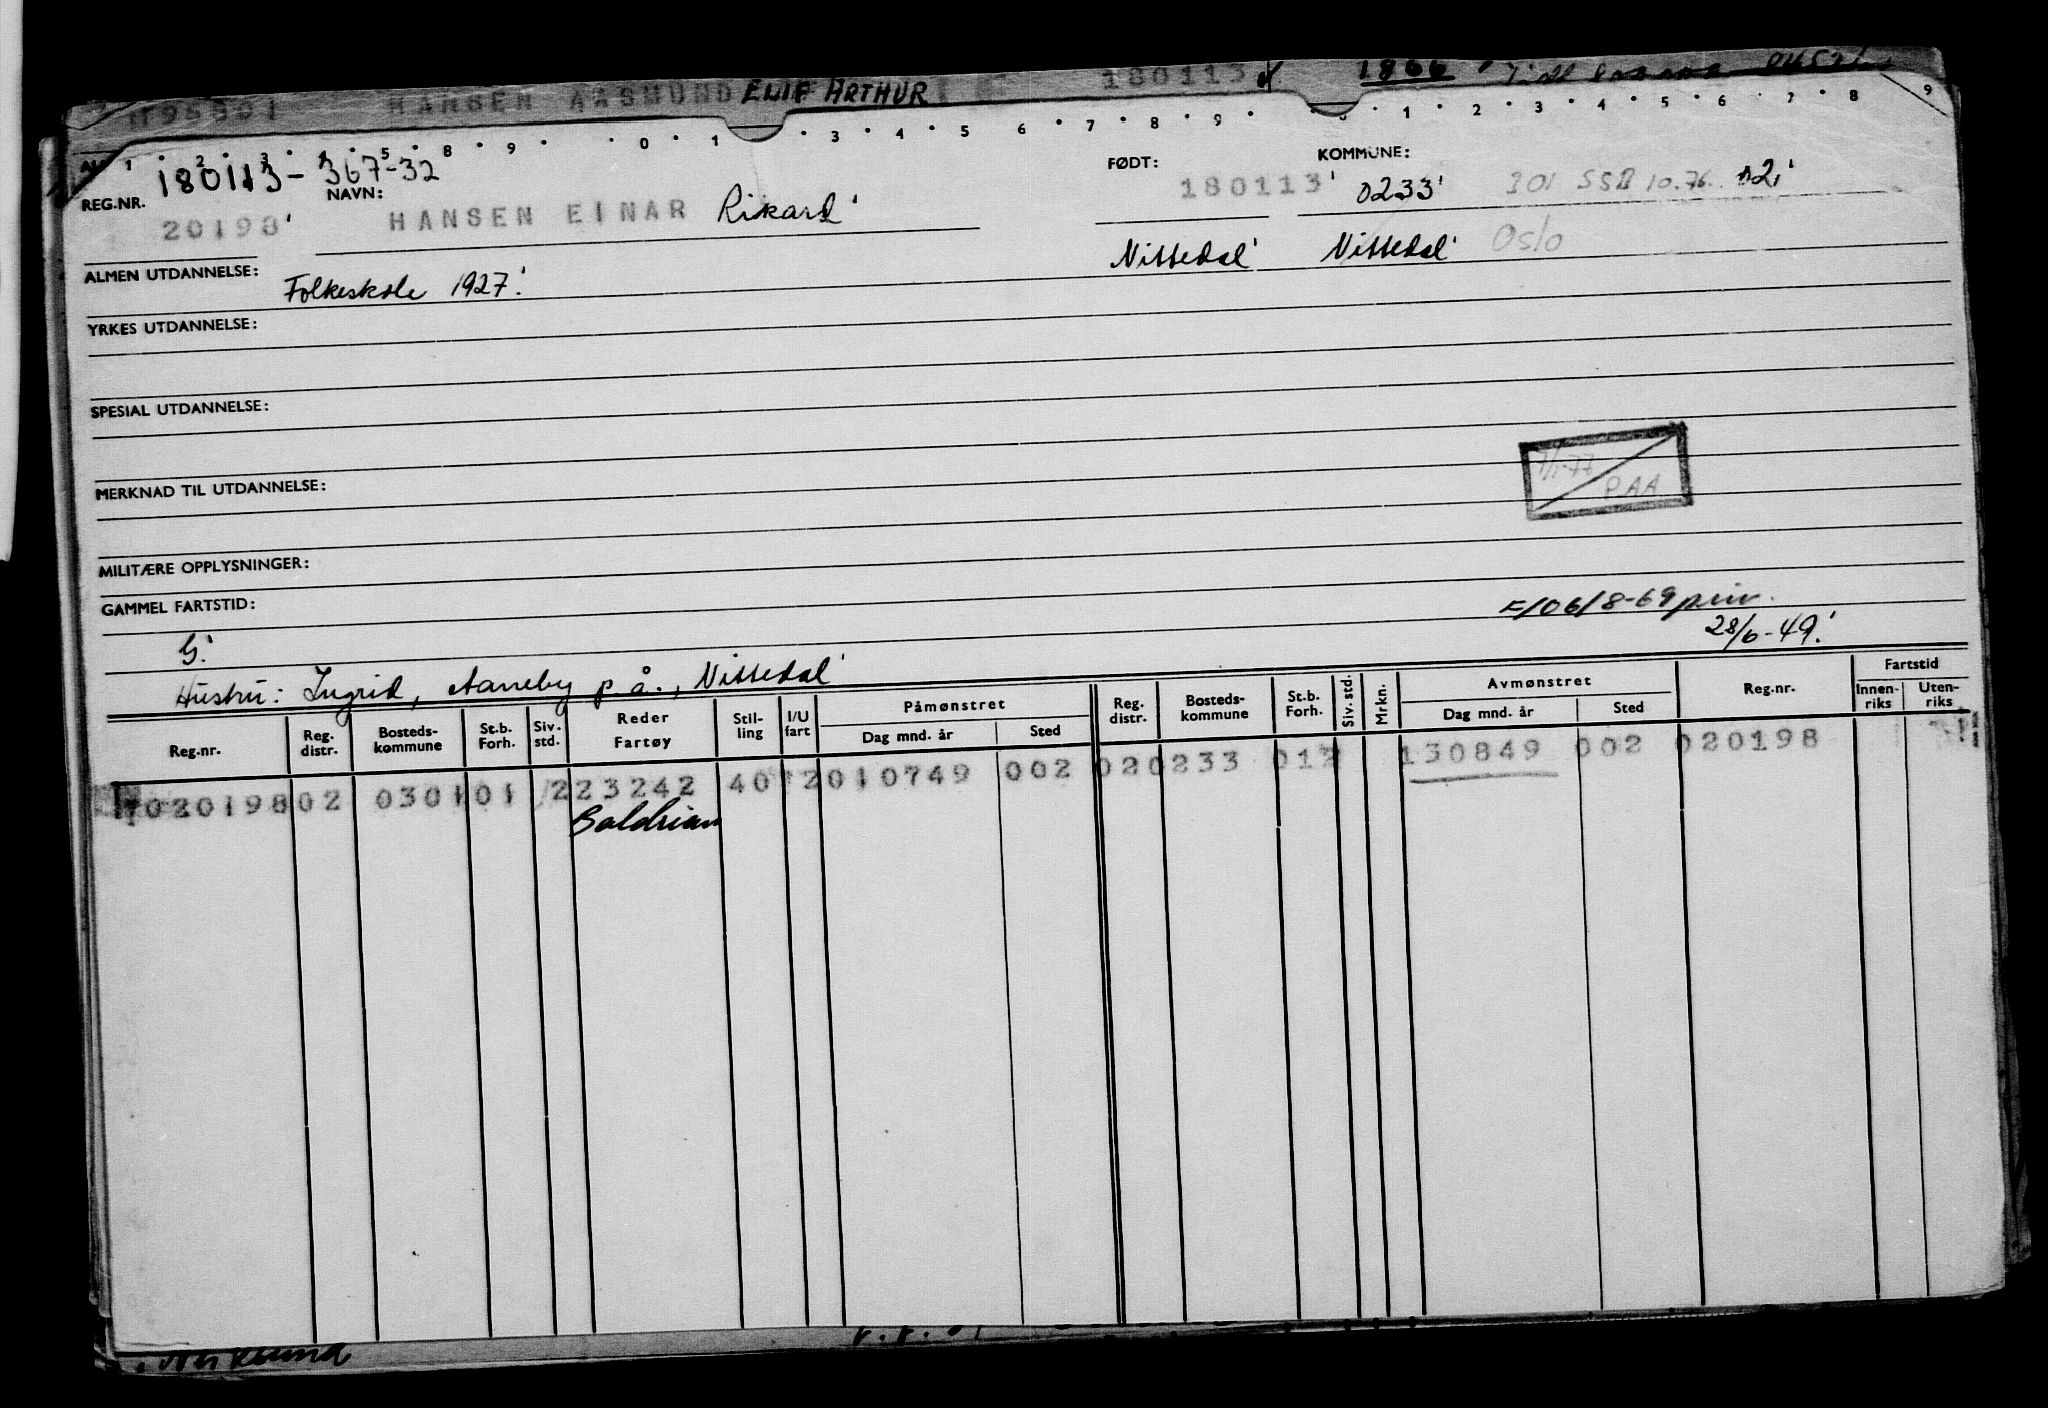 HANSEN AASMUND EMIF ARTHUR 180113 1866
REG.NR. 180113-367-32 NAVN: FØDT: KOMMUNE:
20198' HANSEN EINAR Rikard' 180113' 0233' 301 SSB 10.76. 02'
Nittedal' Nittedal' Oslo
ALMEN UTDANNELSE: Folkeskole 1927.'
YRKES UTDANNELSE:
SPESIAL UTDANNELSE:
MERKNAD TIL UTDANNELSE:
P.AA
MILITÆRE OPPLYSNINGER:
GAMMEL FARTSTID:
28/6-49.'
G.'
Hustru: Ingrid, Aaneby p.å., Nittedal'
Reg.nr. Reg. distr. Bosteds-kommune St.b. Forh. Siv. std. Reder Fartøy Stil-ling I/U fart Påmønstret Dag mnd. år Sted Reg. distr. Bosteds-kommune St.b. Forh. Siv. std. Mrkn. Avmønstret Dag mnd. år Sted Reg.nr. Fartstid Innen-riks Uten-riks
020198 02 0301 01 2 23242 401 2 010749 002 02 0233 012 130849 002 020198
Baldrian